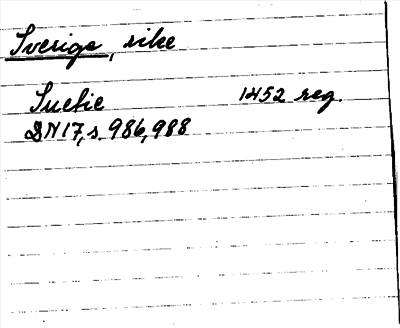 Sverige, rike
Suetie 1452 reg.
DN 17, s. 986, 988